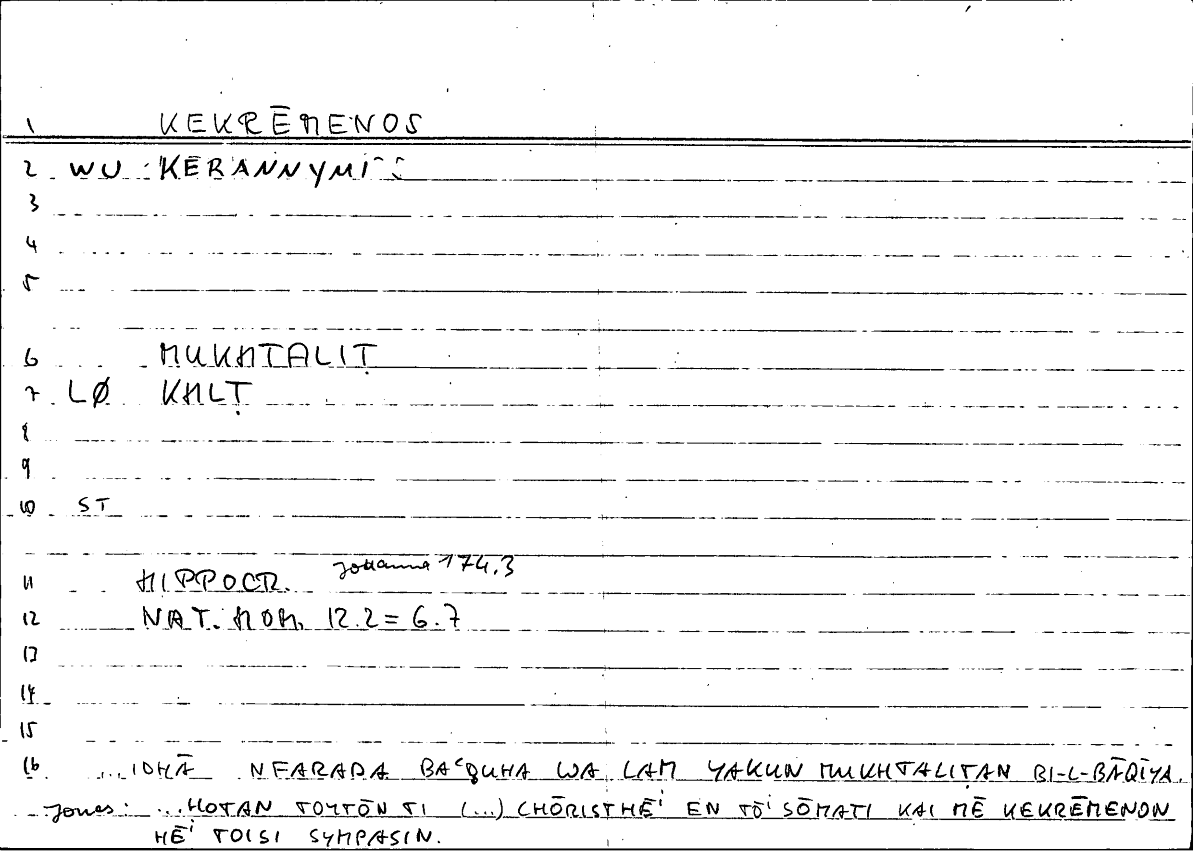 1 KEKRĒMENOS
2 WU KERANNYMI
3
4
5
6 MUKHTALIṬ
7 LØ KHLṬ
8
9
10 ST
Johanna 174.3
11 HIPPOCR.
12 NAT. HOM. 12.2 = 6.7
13
14
15
16 ...IDHĀ NFARADA BAʿḌUHA WA LAM YAKUN MUKHTALIṬAN BI-L-BĀQĪYA.
Jones: ...HOTAN TOYTŌN TI (...) CHŌRISTHĒⁱ EN TŌⁱ SŌMATI KAI MĒ KEKRĒMENON
HĒⁱ TOISI SYMPASIN.